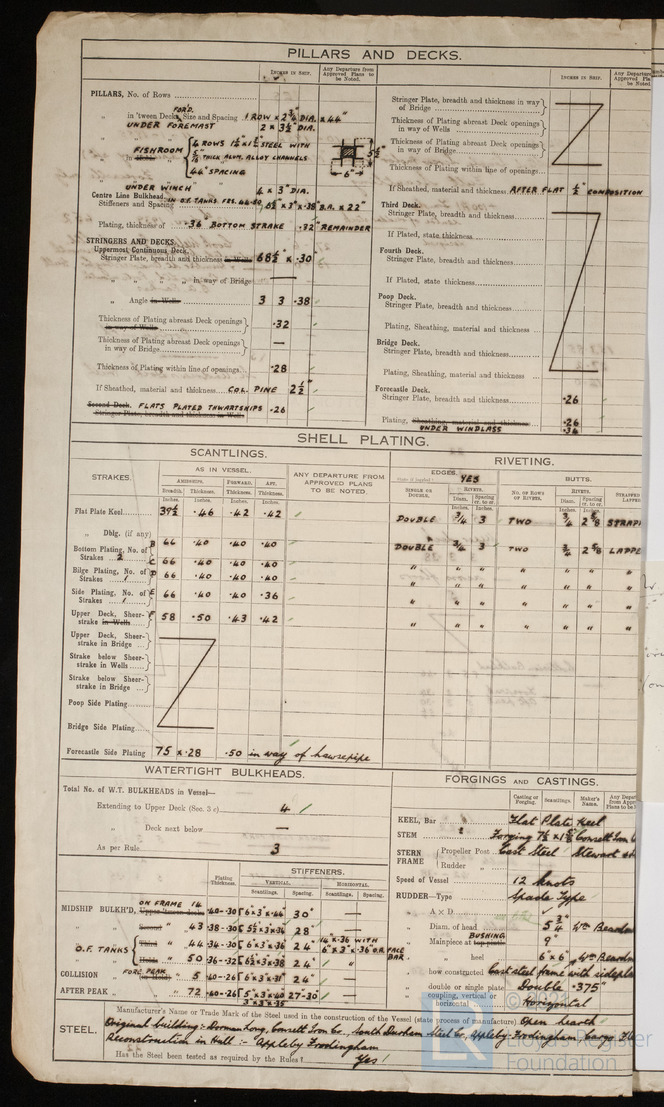 PILLARS AND DECKS.
INCHES IN SHIP.
Any Departure from Approved Plans to be Noted.
PILLARS, No. of Rows
FOR'D.
" in 'tween Decks, Size and Spacing 1 ROW × 2¾" DIA. × 44"
UNDER FOREMAST 2 × 3½" DIA.
FISHROOM 4 ROWS 1½ × 1½ STEEL WITH
THICK ALUM. ALLOY CHANNELS
44" SPACING
6"
" UNDER WINCH 4 × 3" DIA.
Centre Line Bulkhead. IN O.F. TANKS FRS.
Stiffeners and Spacing 6½ × 3" × .38" B.A. × 22"
Plating, thickness of .36 BOTTOM STRAKE .32" REMAINDER
STRINGERS AND DECKS.
Uppermost Continuous Deck.
Stringer Plate, breadth and thickness in Wells 68½" × .30
" " " " in way of Bridge —
" Angle in Wells 3 3 .38
Thickness of Plating abreast Deck openings in way of Wells .32
Thickness of Plating abreast Deck openings in way of Bridge —
Thickness of Plating within line of openings .28
If Sheathed, material and thickness COL. PINE 2½"
Second Deck. FLATS PLATED THWARTSHIPS .26
Stringer Plate, breadth and thickness in Wells
INCHES IN SHIP.
Any Departure Approved Plans be Noted
Stringer Plate, breadth and thickness in way of Bridge
Thickness of Plating abreast Deck openings in way of Wells
Thickness of Plating abreast Deck openings in way of Bridge
Thickness of Plating within line of openings
If Sheathed, material and thickness AFTER FLAT ½" COMPOSITION
Third Deck.
Stringer Plate, breadth and thickness
If Plated, state thickness
Fourth Deck.
Stringer Plate, breadth and thickness
If Plated, state thickness
Poop Deck.
Stringer Plate, breadth and thickness
Plating, Sheathing, material and thickness
Bridge Deck.
Stringer Plate, breadth and thickness
Plating, Sheathing, material and thickness
Forecastle Deck.
Stringer Plate, breadth and thickness .26
Plating, Sheathing, material and thickness .26
UNDER WINDLASS .34
SHELL PLATING.
SCANTLINGS.
RIVETING.
STRAKES.
AS IN VESSEL.
AMIDSHIPS. FORWARD. AFT.
Breadth. Thickness. Thickness. Thickness.
Inches. Inches. Inches. Inches.
ANY DEPARTURE FROM APPROVED PLANS TO BE NOTED
EDGES. YES
SINGLE OR DOUBLE.
RIVETS.
Diam. Spacing cr. to cr.
BUTTS.
NO. OF ROWS OF RIVETS.
RIVETS.
Diam. Spacing cr. to cr.
Flat Plate Keel 39½ .46 .42 .42 DOUBLE ¾ 3 TWO ¾ 2⅝ STRAP
" Dblg. (if any)
Bottom Plating, No. of Strakes 2 B 66 .40 .40 .40 DOUBLE ¾ 3 TWO ¾ 2⅝ LAPPE
C 66 .40 .40 .40 " " " " " " "
Bilge Plating, No. of Strakes 1 D 66 .40 .40 .40 " " " " " " "
Side Plating, No. of Strakes 1 E 66 .40 .40 .36 " " " " " " "
Upper Deck, Sheerstrake in Wells F 58 .50 .43 .42 " " " " " " "
Upper Deck, Sheerstrake in Bridge
Strake below Sheerstrake in Wells
Strake below Sheerstrake in Bridge
Poop Side Plating
Bridge Side Plating
Forecastle Side Plating 75 × .28 .50 in way of hawsepipe
WATERTIGHT BULKHEADS.
Total No. of W.T. BULKHEADS in Vessel—
Extending to Upper Deck (Sec. 3 c) 4
" Deck next below —
As per Rule 3
Plating Thickness.
STIFFENERS.
VERTICAL. HORIZONTAL.
Scantlings. Spacing. Scantlings. Spacing.
MIDSHIP BULKH'D, ON FRAME 14 .40-.30 6×3×.44 30" —
" " 43 .38-.30 5½×3×.36 28" —
O.F. TANKS " Third " 44 .34-.30 6×3×.36 24 WITH
" 50 .36-.32 6½×3×.38 24 FACE BAR
COLLISION FORE PEAK 5 .40-.26 6×3×.31 24" —
AFTER PEAK " 72 .40-.26 5×3×.40 27-30 —
FORGINGS AND CASTINGS.
Casting or Forging. Scantlings. Maker's Name.
KEEL, Bar Flat Plate Keel
STEM Forging Consett Iron
STERN FRAME Propeller Post Cast Steel Stewart
Rudder "
Speed of Vessel 12 knots
RUDDER—Type Spade Type
" A × D
" Diam. of head 5¾"
" Mainpiece at top pintle BUSHING 9"
" " heel 6" × 6"
" how constructed Cast steel frame with sideplates
" double or single plate Double .375"
" coupling, vertical or horizontal Horizontal
STEEL. Manufacturer's Name or Trade Mark of the Steel used in the construction of the Vessel (state process of manufacture) Open hearth
Original building:- Dorman Long, Consett Iron Co., South Durham Steel Co., Appleby-Frodingham, Cargo
Reconstruction in Hull:- Appleby Frodingham
Has the Steel been tested as required by the Rules? Yes!
© 2021
LR
Lloyd's Register
Foundation